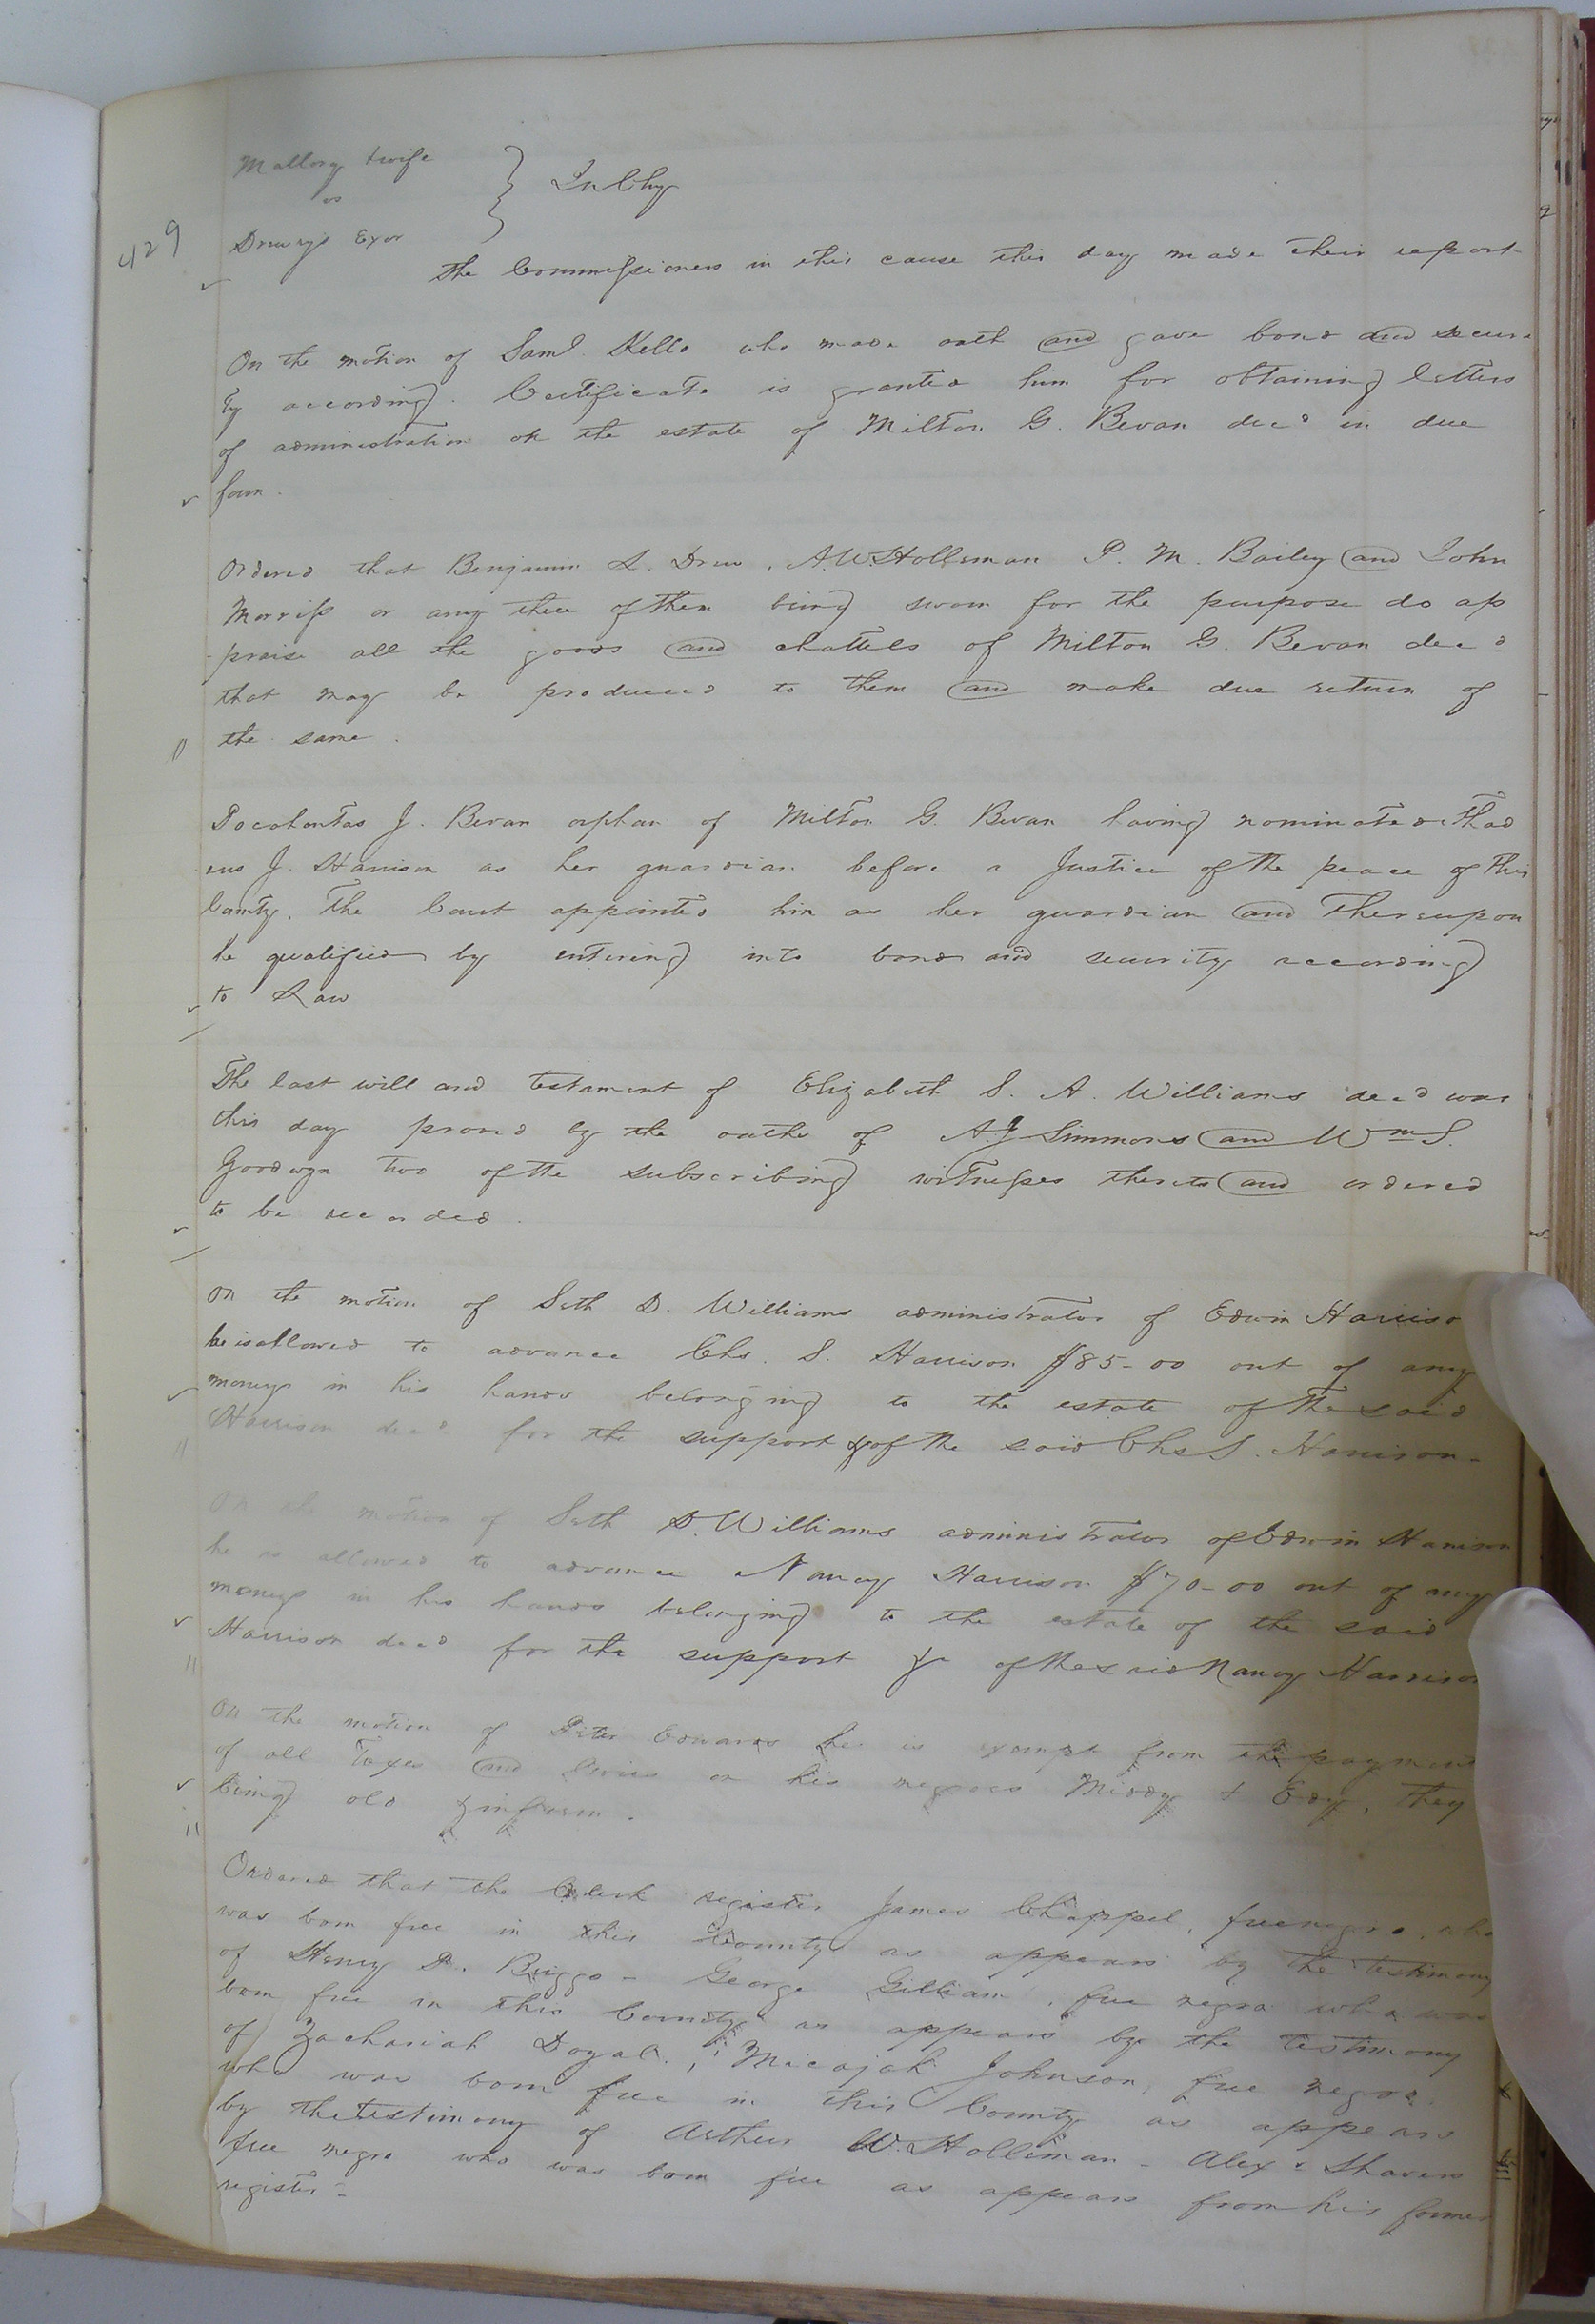 Mallory & wife
vs
Drewry's Exor
} In Chy
429
The Commissioners in this cause this day made their report
On the motion of Saml. Kello who made oath and gave bond and secur
ity according. Certificate is granted him for obtaining letters
of administration on the estate of Milton G. Bevan decd in due
form.
Ordered that Benjamin L. Drew, A. W. Holleman P. M. Bailey and John
Morriss or any three of them being sworn for the purpose do ap
-praise all the goods and chattels of Milton G. Bevan decd
that may be produced to them and make due return of
the same.
Pocahontas J. Bevan orphan of Milton G. Bevan having nominated Thad
eus J. Harrison as her guardian before a Justice of the peace of this
County. The Court appointed him as her guardian and Thereupon
he qualified by entering into bond and security according
to Law
The last will and testament of Elizabeth S. A. Williams decd was
this day proved by the oaths of A. J. Simmons and Wm S.
Goodwyn two of the subscribing witnesses thereto and ordered
to be recorded.
On the motion of Seth D. Williams administrator of Edwin Harriso
he is allowed to advance Chs. S. Harrison $85-00 out of any
moneys in his hands belonging to the estate of the said
Harrison decd for the support &c of the said Chs S. Harrison-
On the motion of Seth D. Williams administrator of Edwin Harrison
he is allowed to advance Nancy Harrison $70-00 out of any
moneys in his hands belonging to the estate of the said
Harrison decd for the support &c of the said Nancy Harrison
On the motion of Peter Edwards he is exempt from the payment
of all Taxes and levies on his negroes Middy & Edy, They
being old & infirm.
Ordered that the Clerk register James Chappel, free negro, who
was born free in this County as appears by the testimony
of Henry D. Briggs - George Gilliam, free negro who was
born free in this County as appears by the testimony
of Zachariah Doyal, Micajah Johnson, free negro,
who was born free in this County as appears
by the testimony of Arthur W. Holliman - Alexr Shavers
free negro who was born free as appears from his former
register-